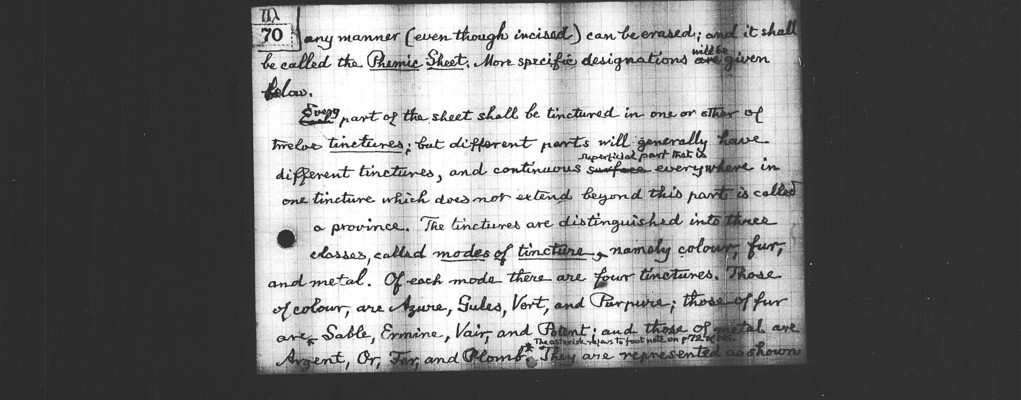 70
any manner (even though incised) can be erased; and it shall
will be
be called the Phemic Sheet. More specific designations are given
below.
Every
Each part of the sheet shall be tinctured in one or other of
twelve tinctures; but different parts will generally have
superficial part that is
different tinctures, and continuous surface everywhere in
one tincture which does not extend beyond this part is called
a province. The tinctures are distinguished into three
classes, called modes of tincture, namely colour, fur,
and metal. Of each mode there are four tinctures. Those
of colour, are Azure, Gules, Vert, and Purpure; those of fur
are, Sable, Ermine, Vair, and Potent; and those of metal are
The asterisk refers to foot note on p 72
Argent, Or, Fer, and Plomb.* They are represented as shown